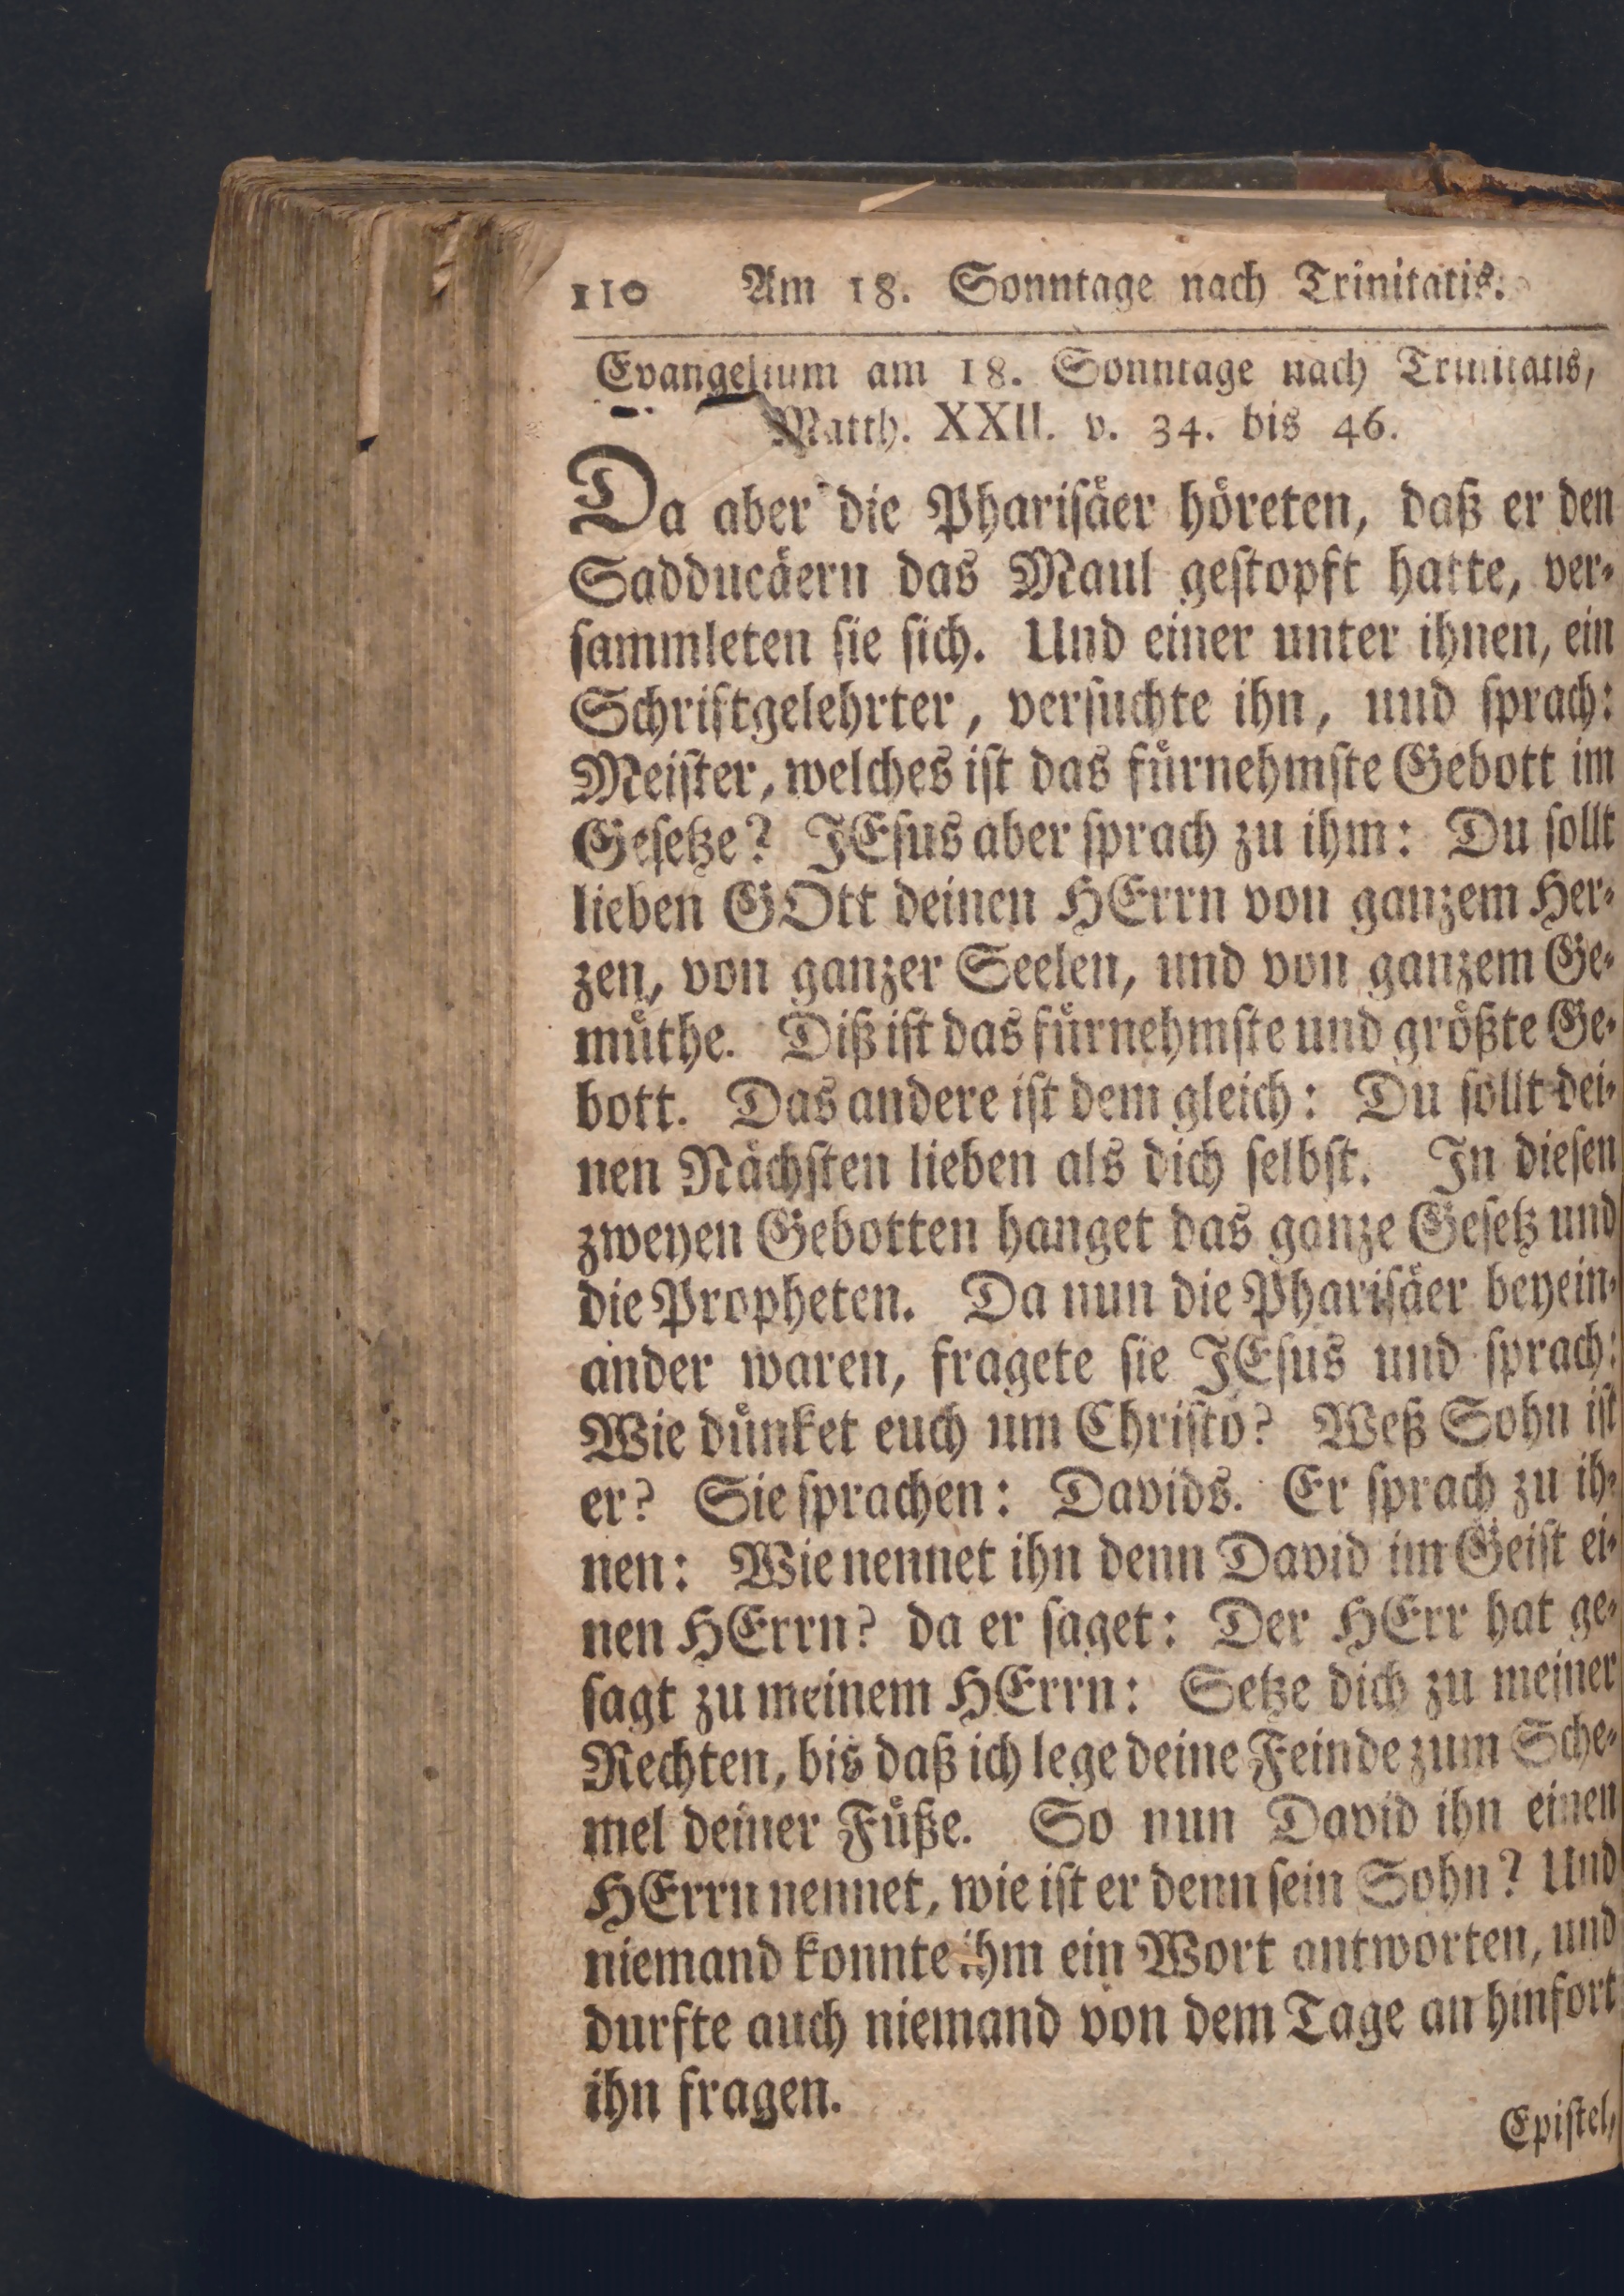 110 Am 18. Sonntage nach Trinitatis.
Evangelium am 18. Sonntage nach Trinitatis,
Matth. XXII. v. 34. bis 46.
Da aber die Phariſäer höreten, daß er den
Sadducäern das Maul geſtopft hatte, ver-
ſammleten ſie ſich. Und einer unter ihnen, ein
Schriftgelehrter, verſuchte ihn, und ſprach:
Meiſter, welches iſt das fürnehmſte Gebott im
Geſetze? JEſus aber ſprach zu ihm: Du ſollt
lieben GOtt deinen HErrn von ganzem Her-
zen, von ganzer Seelen, und von ganzem Ge-
müthe. Diß iſt das fürnehmſte und größte Ge-
bott. Das andere iſt dem gleich: Du ſollt dei-
nen Nächſten lieben als dich ſelbſt. In dieſen
zweyen Gebotten hanget das ganze Geſetz und
die Propheten. Da nun die Phariſäer beyein-
ander waren, fragete ſie JEſus und ſprach:
Wie dünket euch um Chriſto? Weß Sohn iſt
er? Sie ſprachen: Davids. Er ſprach zu ih-
nen: Wie nennet ihn denn David im Geiſt ei-
nen HErrn? da er ſaget: Der HErr hat ge-
ſagt zu meinem HErrn: Setze dich zu meiner
Rechten, bis daß ich lege deine Feinde zum Sche-
mel deiner Füße. So nun David ihn einen
HErrn nennet, wie iſt er denn ſein Sohn? Und
niemand konnte ihm ein Wort antworten, und
durfte auch niemand von dem Tage an hinfort
ihn fragen.
Epiſtel,